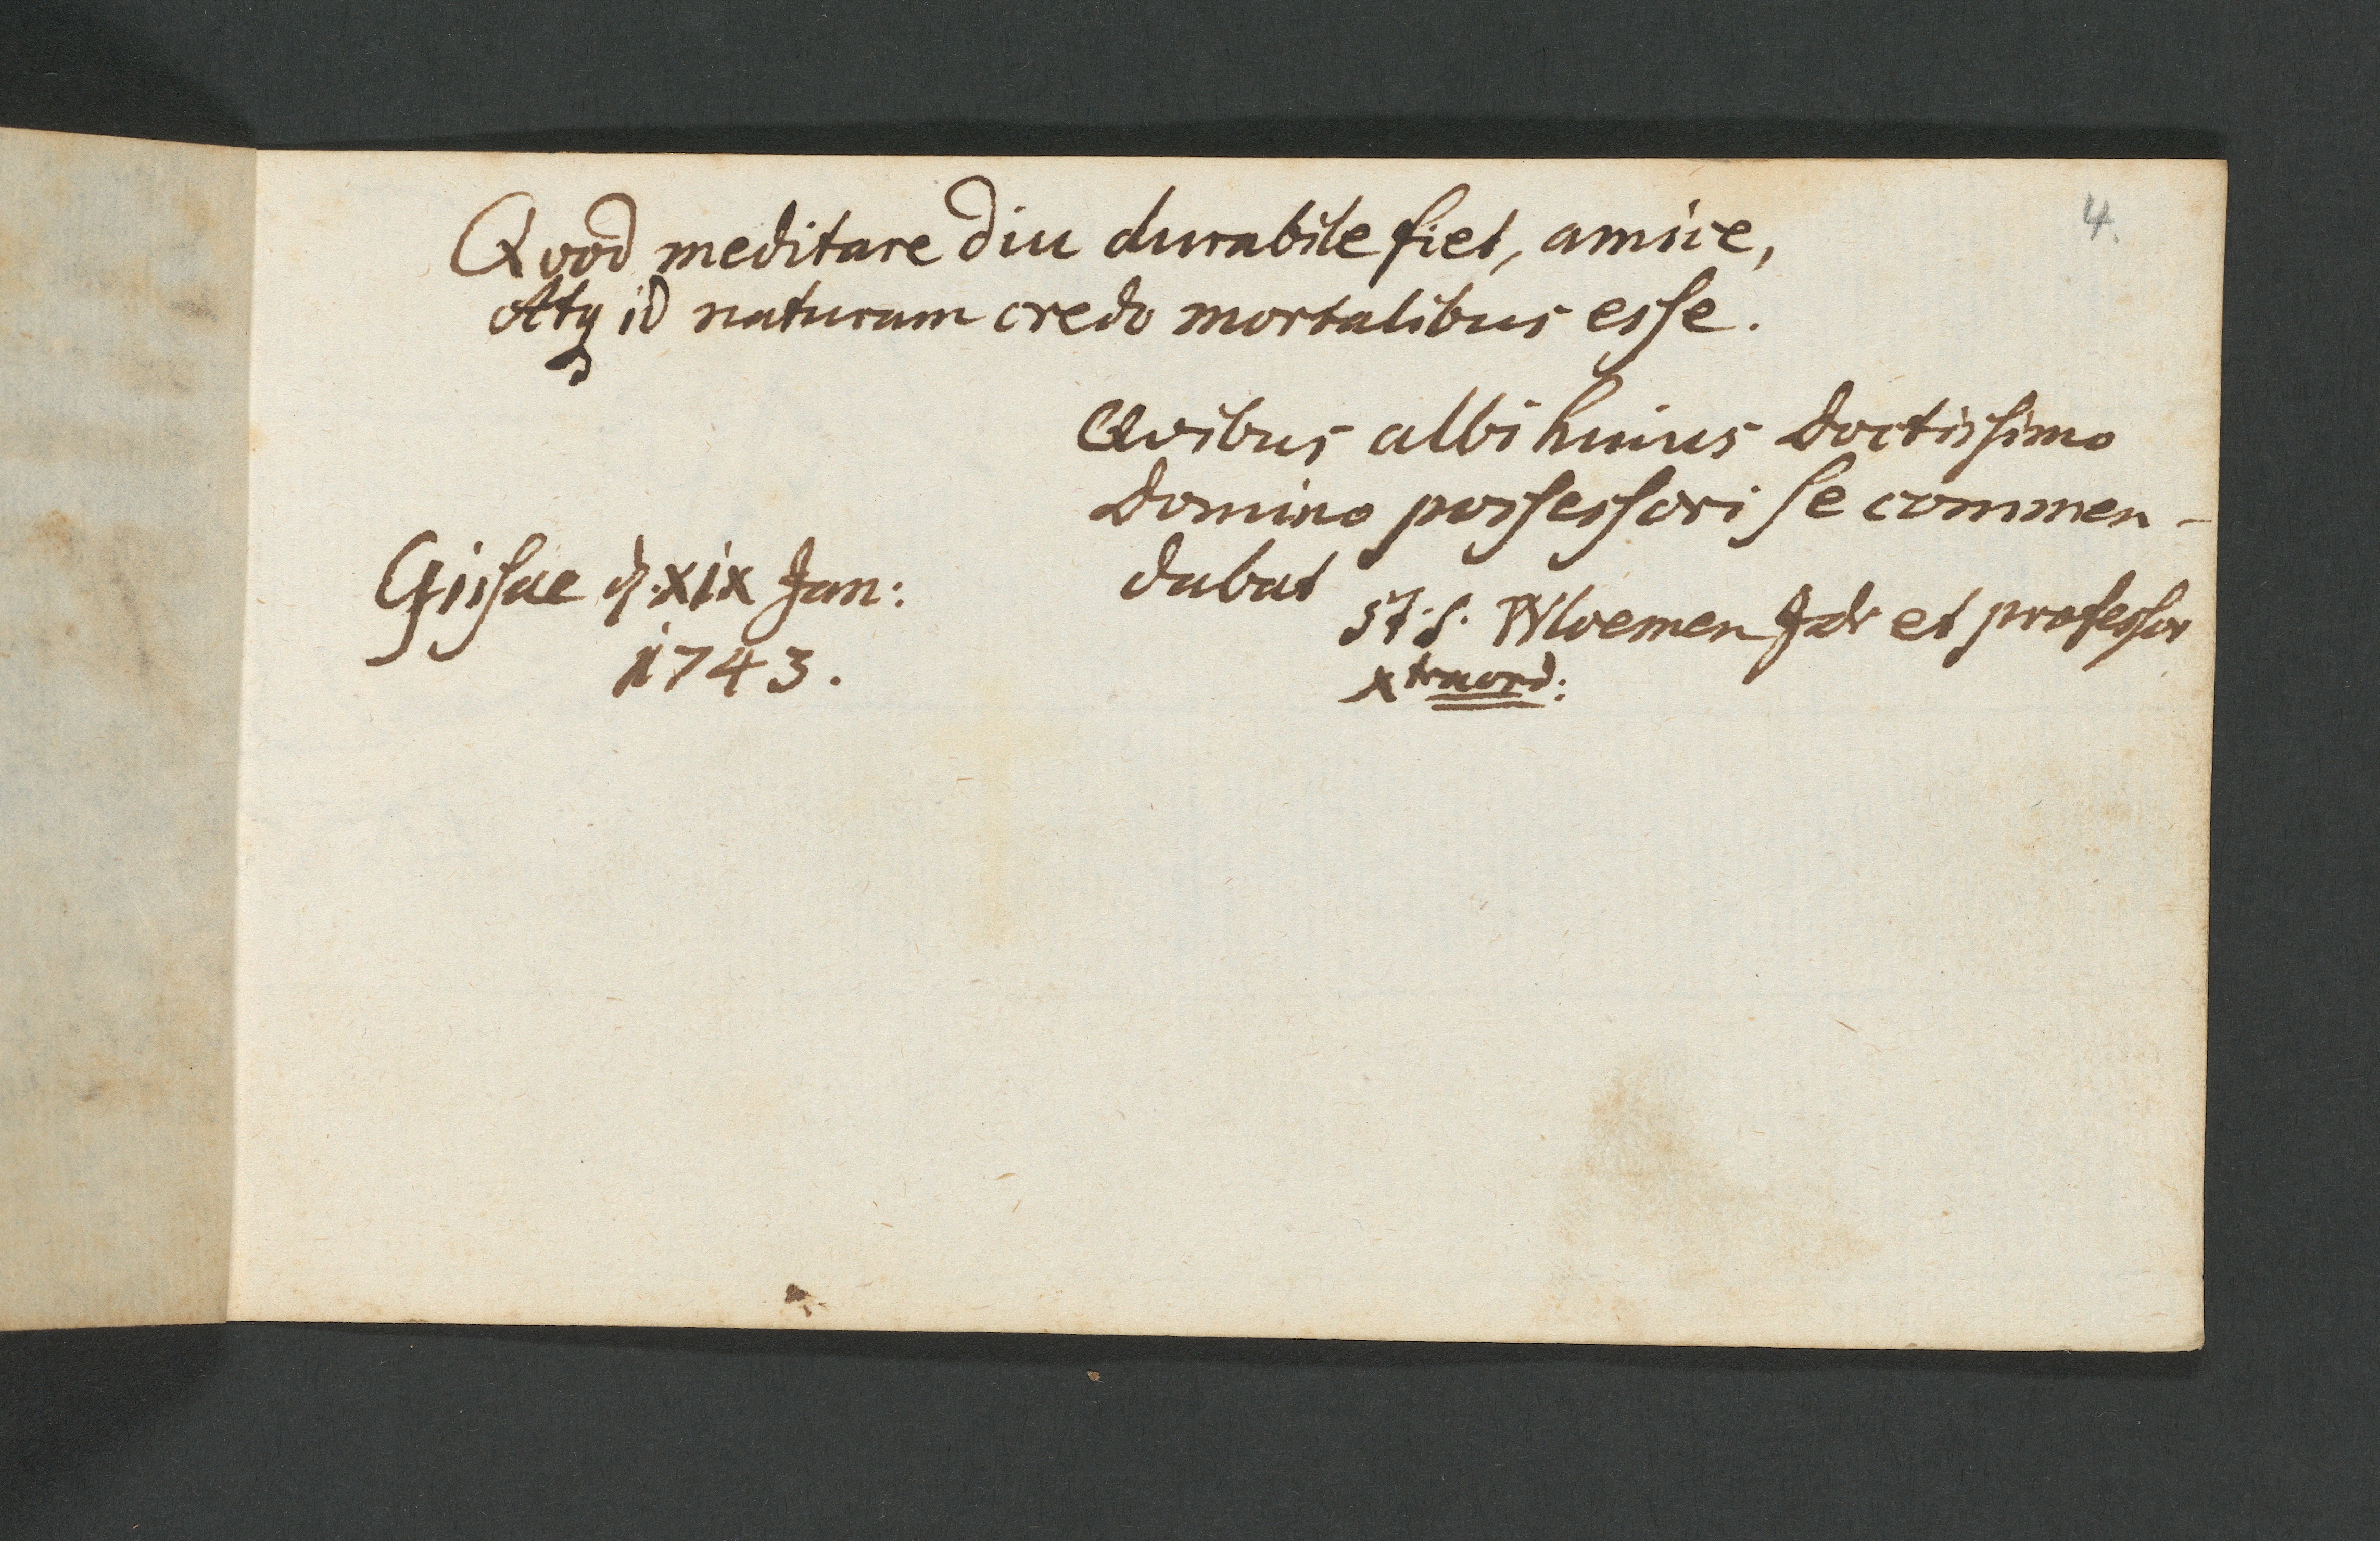 4.
Qvod meditare diu durabile fiet, amice,
Atq id naturam credo mortalibus esse.
Qvibus albi huius doctissimo
domino possessori se commen-
dabat
Gissae d. xix Jan:
1743.
et professor
xtraord: